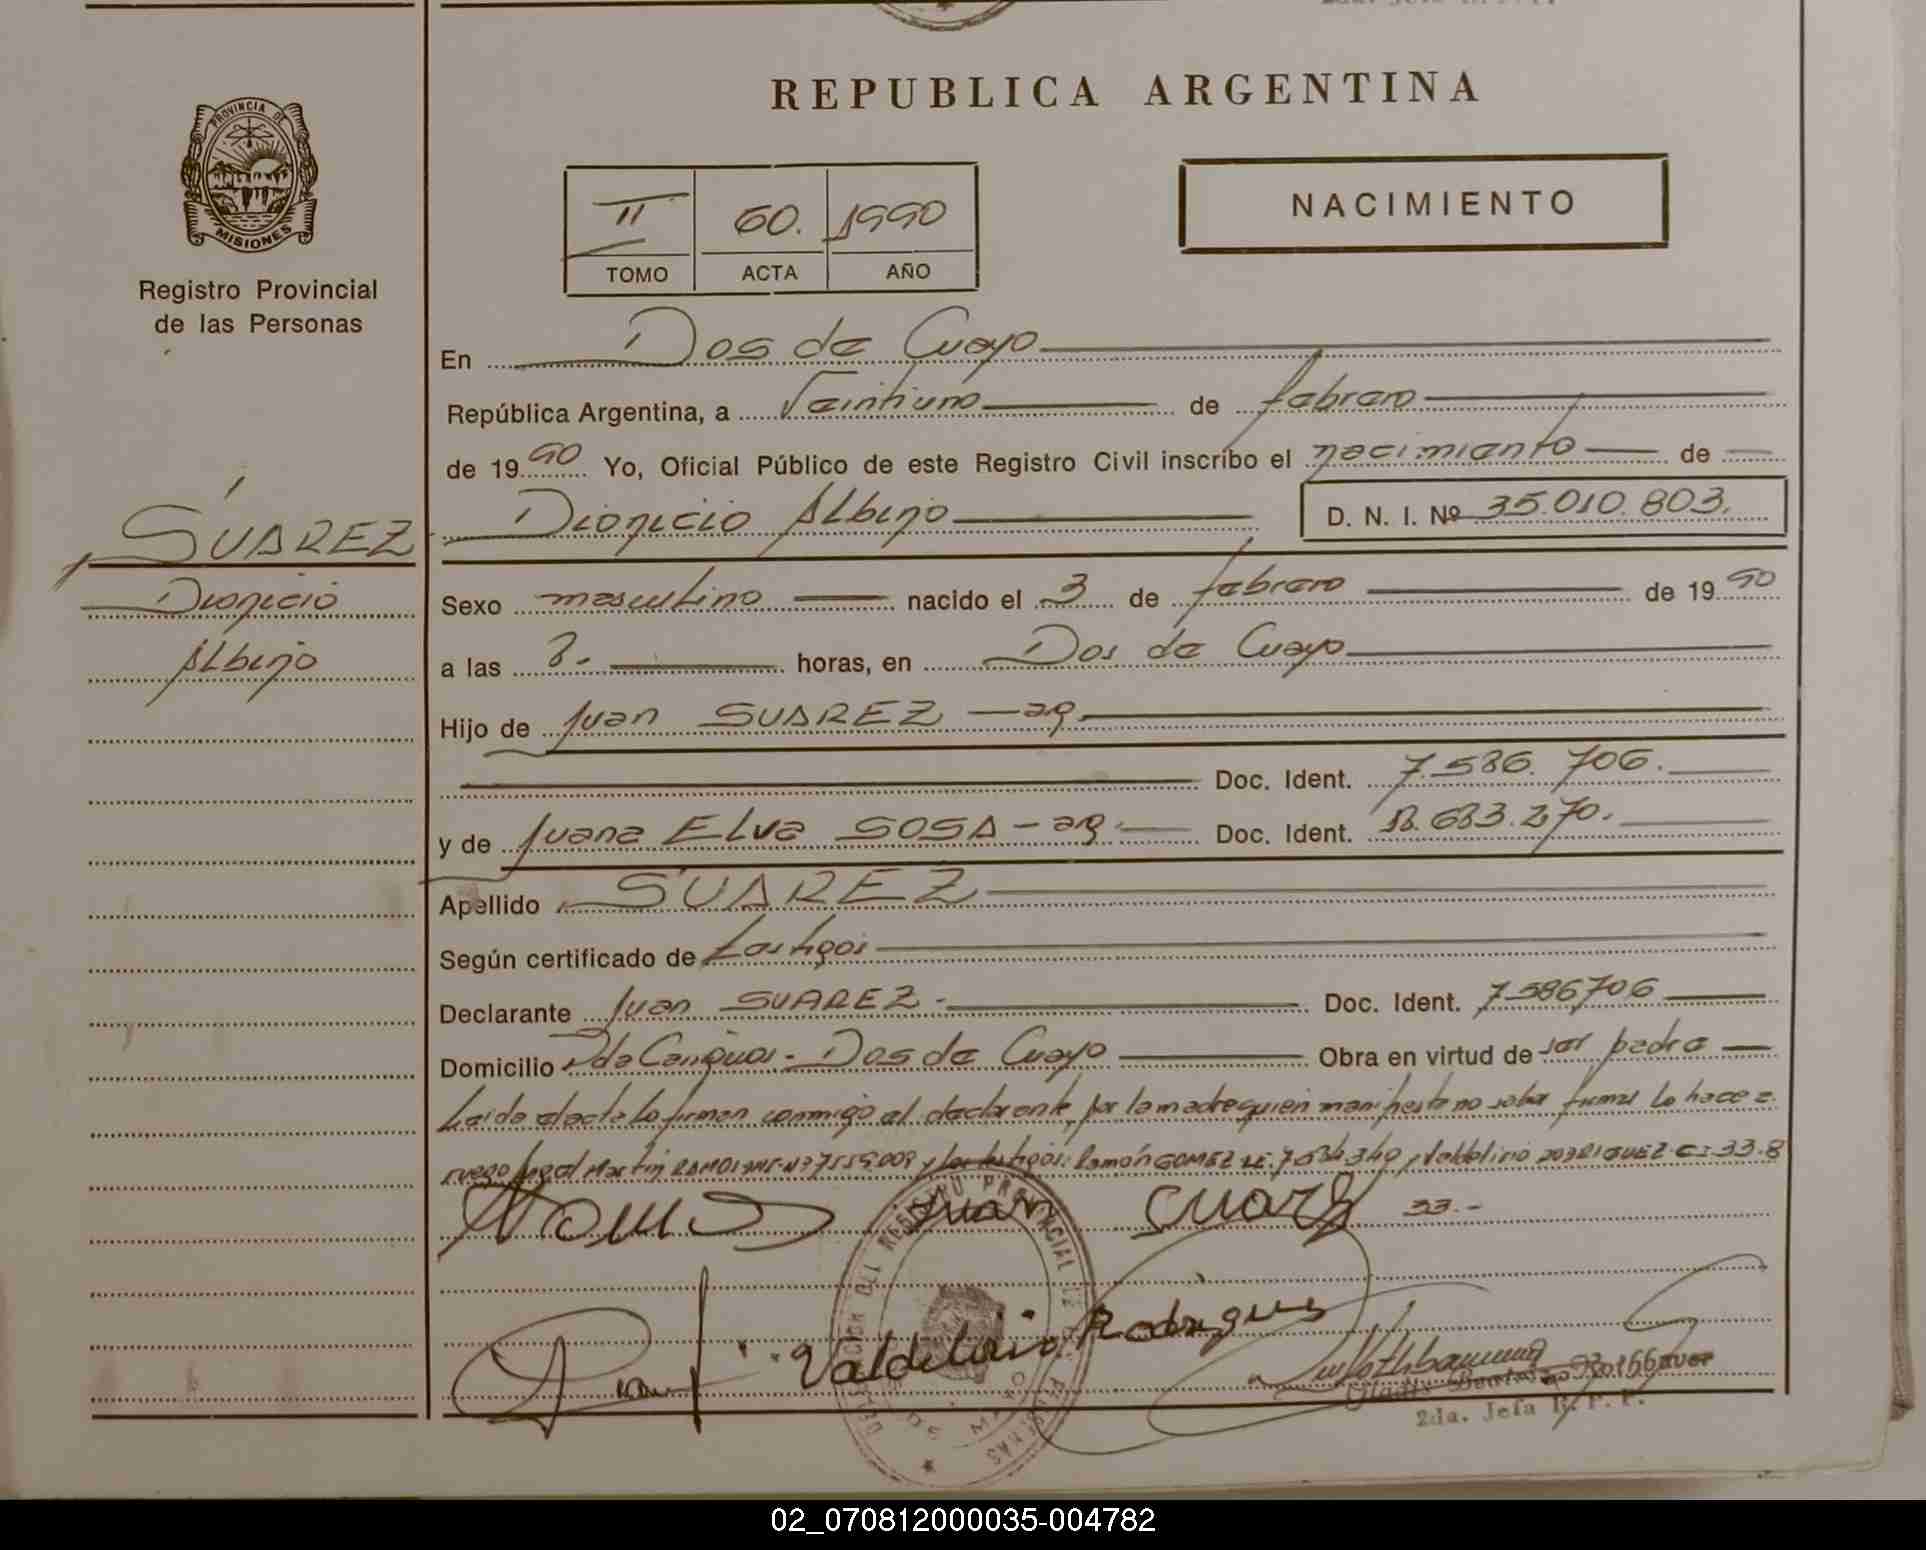 REPUBLICA ARGENTINA
PROVINCIA DE
MISIONES
Registro Provincial
de las Personas
II 60. 1990
TOMO ACTA AÑO
NACIMIENTO
En Dos de Mayo
República Argentina, a Veintiuno de febrero
de 1990 Yo, Oficial Público de este Registro Civil inscribo el nacimiento de
SUAREZ
Dionicio
Albino
Dionicio Albino D. N. I. Nº 35.010.803.
Sexo masculino nacido el 3 de febrero de 1990
a las 8. horas, en Dos de Mayo
Hijo de Juan SUAREZ - ag
Doc. Ident. 7.586.706.
y de Juana Elva SOSA - ag. Doc. Ident. 18.683.270.
Apellido SUAREZ
Según certificado de testigos
Declarante Juan SUAREZ. Doc. Ident. 7586706
Domicilio Dos de Mayo Obra en virtud de ser padre
Leida el acta lo firman conmigo el declarante, por la madre quien manifiesta no saber firmar lo hace a
ruego Martin y los testigos: Ramón GOMEZ LE. Valdelirio RODRIGUEZ CI 33.8
33.-
Juan Suarez
Valdelirio Rodrigues
REGISTRO PROVINCIAL DE
2da. Jefa R. P. P.
02_070812000035-004782